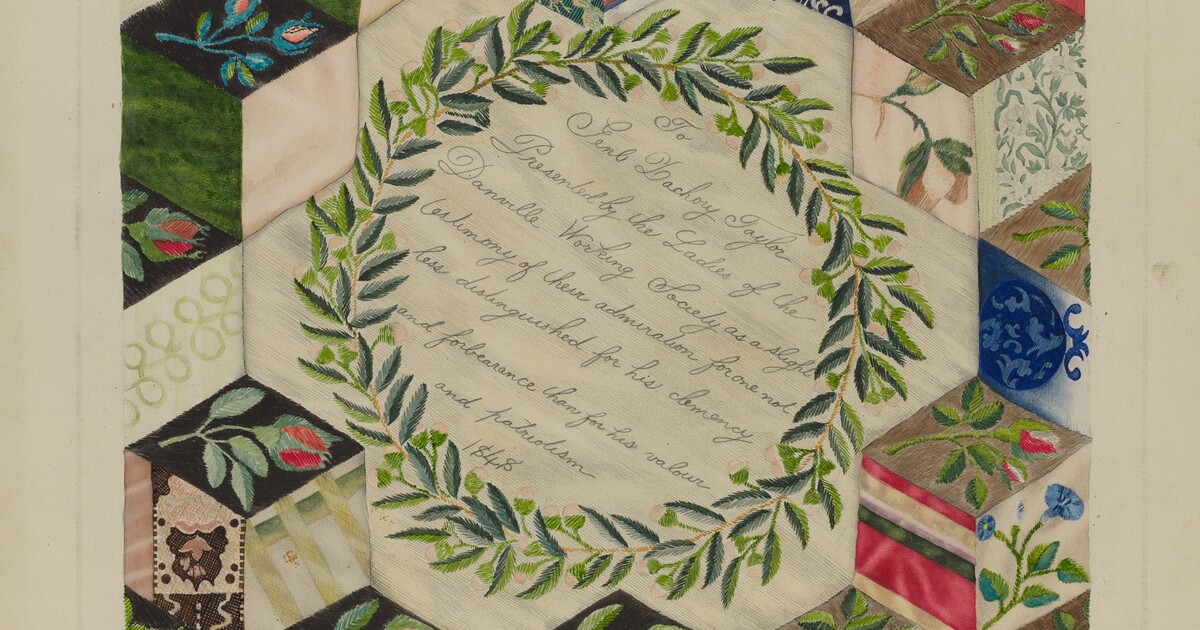 To
Genl Zachory Taylor
Presented by the Ladies of the
Danville Working Society as a slight
testimony of their admiration for one not
less distinguished for his clemency
and forbearance than for his valour
and patriotism
1848